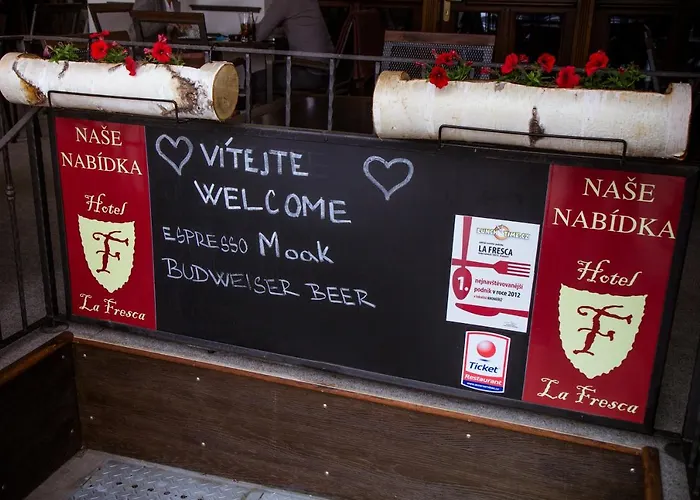 NAŠE
NABÍDKA
Hotel
F
La Fresca
VÍTEJTE
WELCOME
ESPRESSO Moak
BUDWEISER BEER
LUNCHTIME.CZ
LA FRESCA
1.
nejnavštěvovanější
podnik v roce 2012
v lokalitě KROMĚŘÍŽ
Ticket
Restaurant
NAŠE
NABÍDKA
Hotel
F
La Fresca